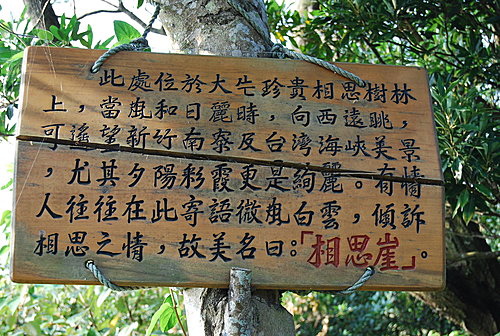 此處位於大牛珍貴相思樹林
上，當風和日麗時，向西遠眺，
可遙望新竹南寮及台灣海峽美景
，尤其夕陽彩霞更是絢麗。有情
人往往在此寄語微風白雲，傾訴
相思之情，故美名曰：「相思崖」。